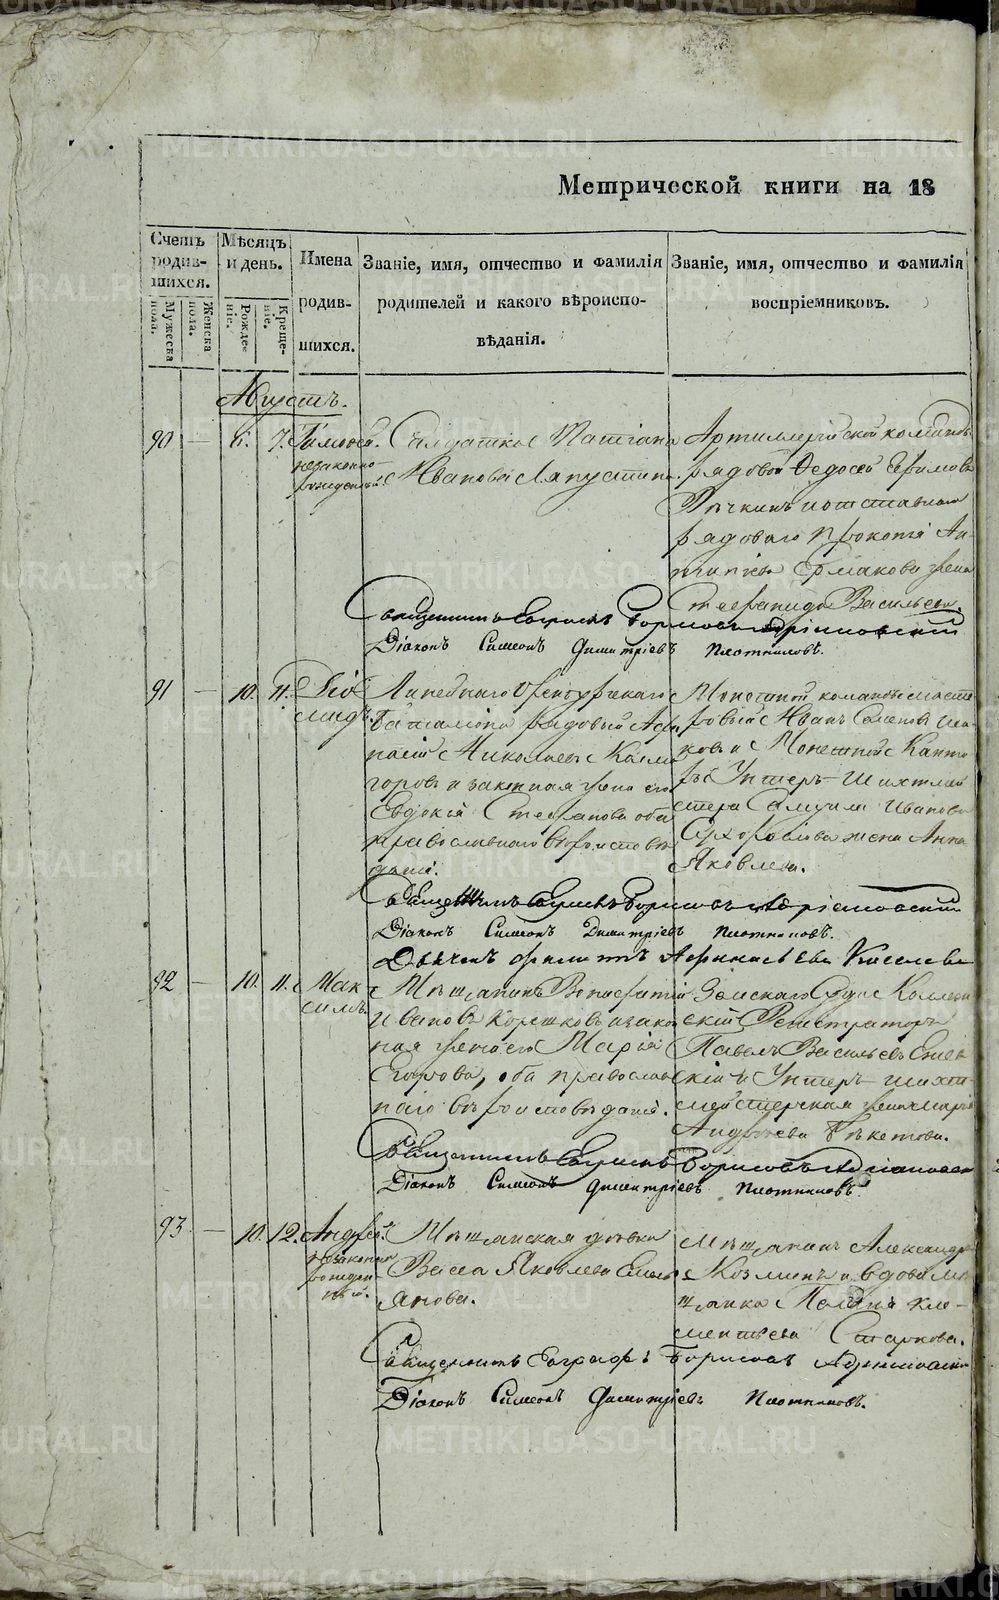 Метрической книги на 18
Счетъ родив-шихся.
Мужеска пола.
Женска пола.
Мѣсяцъ и день.
Рожде-ніе.
Креще-ніе.
Имена
родив-
шихся.
Званіе, имя, отчество и фамилія
родителей и какого вѣроиспо-
вѣданія.
Званіе, имя, отчество и фамилія
воспріемниковъ.
Августъ.
90 — 6. 7.
незаконно-
рожденный
Солдатка Татіана
Иванова Ляпустина.
Артиллерійской команды
рядовой Федосей Ефимовъ
и отставнаго
рядоваго Прокопія Ан-
типіева Ермакова жена
Стефанида Васильева.
Священникъ Борисовъ
Діаконъ Симеонъ Димитріевъ Плотниковъ.
91 — 10. 11.
Линейнаго Оренбургскаго
баталіона рядовый
Николаевъ
и законная жена его
Евдокія Стефанова оба
православнаго вѣроисповѣ-
данія.
Монетной команды масте-
ровый Иванъ
и Монетной Канто-
ры Унтеръ-Шихтмей-
стера Самуила Иванова
жена Анна
Яковлева.
Священникъ Борисовъ
Діаконъ Симеонъ Димитріевъ Плотниковъ.
Дьячекъ Филиппъ Афанасьевъ Киселевъ
92 — 10. 11. Мак-
симъ.
Мѣщанинъ Вонифатій
Ивановъ Корешковъ и закон-
ная жена его Марія
Егорова, оба православ-
наго вѣроисповѣданія.
Земскаго Суда Коллеж-
скій Регистраторъ
Павелъ Васильевъ
и Унтеръ-шихт-
мейстерская жена Марія
Андреева Бѣкетова.
Священникъ Борисовъ
Діаконъ Симеонъ Димитріевъ Плотниковъ.
93 — 10. 12. Андрей.
незаконно
рожден-
ный.
Мѣщанская дѣвка
Васса Яковлева Емель-
янова.
Мѣщанинъ Александръ
Козминъ и вдова мѣ-
щанка Кле-
ментьева Старкова.
Священникъ Евграфъ Борисовъ
Діаконъ Симеонъ Димитріевъ Плотниковъ.
METRIKI.GASO-URAL.RU